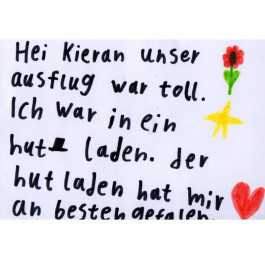 Hei Kieran unser
ausflug war toll.
Ich war in ein
hut laden. der
hut laden hat mir
an besten gefalen.